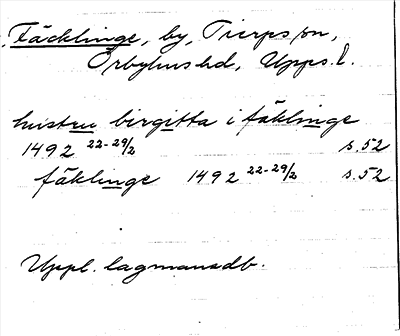 Fäcklinge, by, Tierps sn,
Örbyhus hd, Upps. l.
hustru birgitta i fäklinge
1492 22-29/2 s. 52
fäklinge 1492 22-29/2 s. 52
Uppl. lagmansdb.